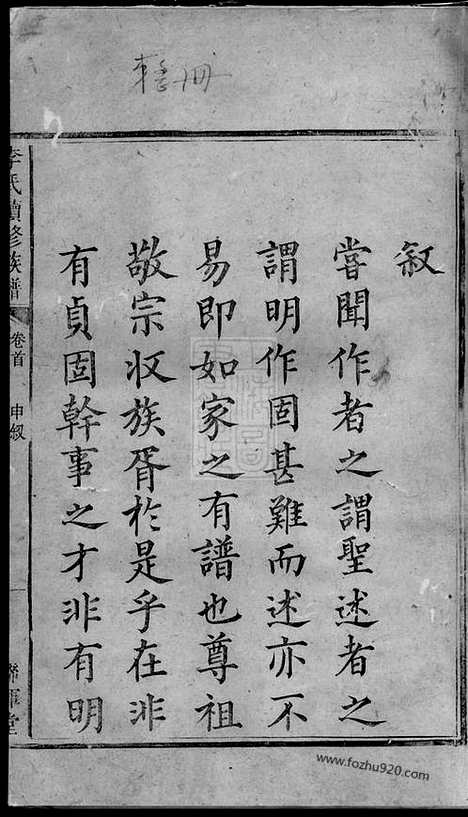 叙
嘗聞作者之謂聖述者之
謂明作固甚難而述亦不
易即如家之有譜也尊祖
敬宗收族胥於是乎在非
有貞固幹事之才非有明
李氏續修族譜
卷首
申叙
堂
整冊
www.fozhu920.com